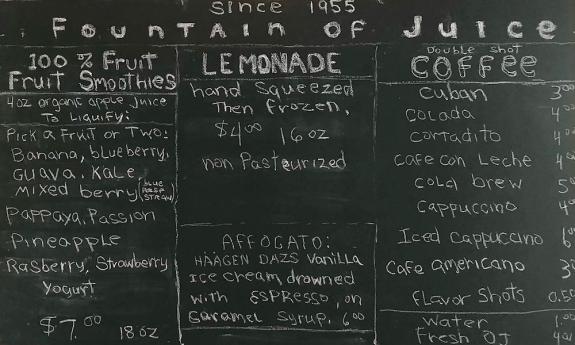 Since 1955
Fountain of Juice
100 % Fruit
Fruit Smoothies
4oz organic apple Juice
To Liquify:
Pick a Fruit or Two:
Banana, blueberry,
Guava, Kale,
Mixed berry (blue
STRAW)
Pappaya, Passion
Pineapple
Rasberry, Strawberry
Yogurt
$7.00 18oz
LEMONADE
hand Squeezed
Then frozen,
$4.00 16oz
non Pasteurized
AFFOGATO:
HÄAGEN DAZS Vanilla
Ice cream, drowned
with ESPRESSO, on
Caramel Syrup, 6.00
Double Shot
COFFEE
Cuban 3.00
Colada
Cortadito
Cafe con Leche
Cold brew
Cappuccino
Iced Cappuccino
Cafe americano
flavor Shots 0.50
Water
Fresh OJ